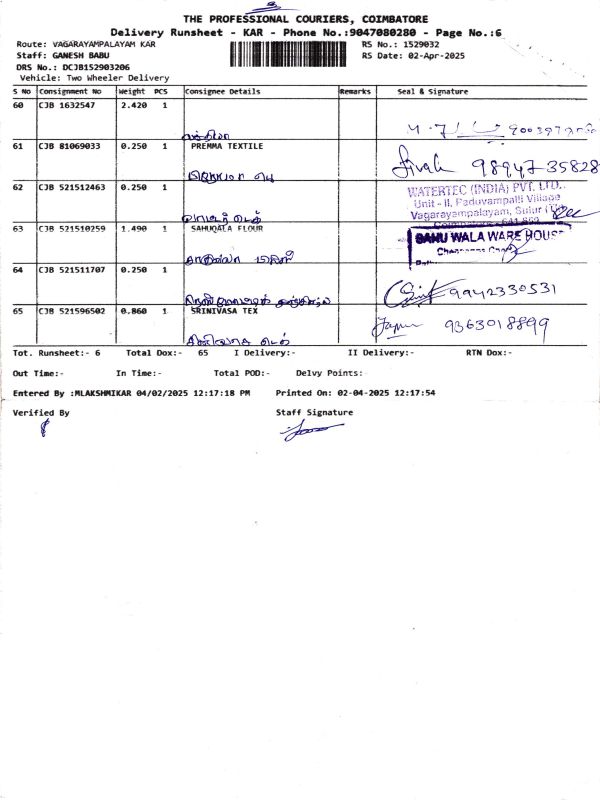 THE PROFESSIONAL COURIERS, COIMBATORE
Delivery Runsheet - KAR - Phone No.:9047080280 - Page No.:6
Route: VAGARAYAMPALAYAM KAR
RS No.: 1529032
Staff: GANESH BABU
RS Date: 02-Apr-2025
DRS No.: DCJB152903206
Vehicle: Two Wheeler Delivery
S No Consignment No Weight PCS Consignee Details Remarks Seal & Signature
60 CJB 1632547 2.420 1
61 CJB 81069033 0.250 1 PREMMA TEXTILE
98947-35828
62 CJB 521512463 0.250 1
WATERTEC (INDIA) PVT. LTD.
Unit - II, Paduvampalli Village
Vagarayampalayam, Sulur
63 CJB 521510259 1.490 1 SAHUQALA FLOUR
SAHU WALA WARE HOUSE
64 CJB 521511707 0.250 1
9942330531
65 CJB 521596502 0.860 1 SRINIVASA TEX
9363018899
Tot. Runsheet:- 6 Total Dox:- 65 I Delivery:- II Delivery:- RTN Dox:-
Out Time:- In Time:- Total POD:- Delvy Points:-
Entered By :MLAKSHMIKAR 04/02/2025 12:17:18 PM Printed On: 02-04-2025 12:17:54
Verified By Staff Signature